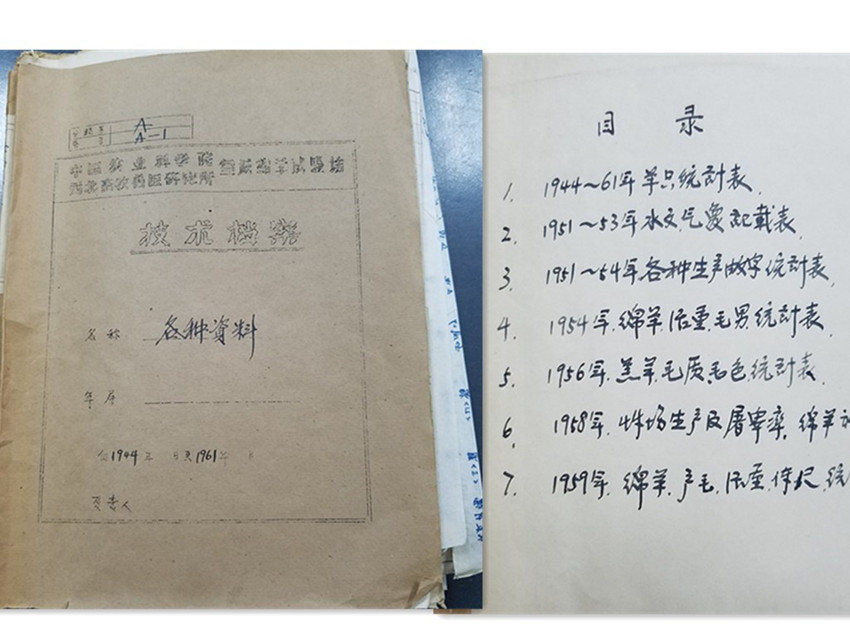 A
A-1
中国农业科学院
研究所
技术档案
名称 各种资料
年度
自1944年 月至1961年 月
负责人
目 录
1. 1944～61年羊只统计表.
2. 1951～53年水文气象记载表.
3. 1951～54年各种生产数字统计表.
4. 1954年.绵羊.活重.毛男.统计表.
5. 1956年.羔羊.毛质毛色.统计表.
6. 1958年. 生产及屠宰率.绵羊
7. 1959年.绵羊.产毛.活重.体尺.统